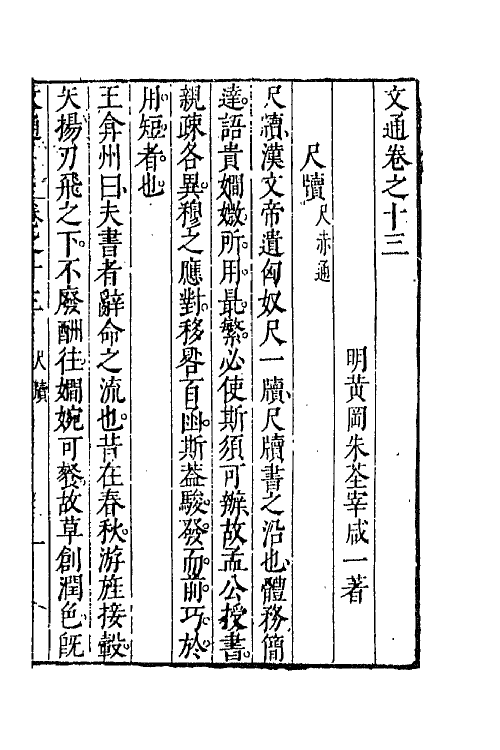 文通卷之十三
明黃岡朱荃宰咸一著
尺牘尺赤通
尺牘漢文帝遺匈奴尺一牘尺牘書之沿也體務簡
達語貴嫺媺所用最繁必使斯須可辦故孟公授書
親疎各異穆之應對移晷百函斯蓋駿發而前巧於
用短者也
王弇州曰夫書者辭命之流也昔在春秋游旌接轂
矢揚刃飛之下不廢酬往嫺婉可餐故草創潤色旣
文通 卷之十三 尺牘 一